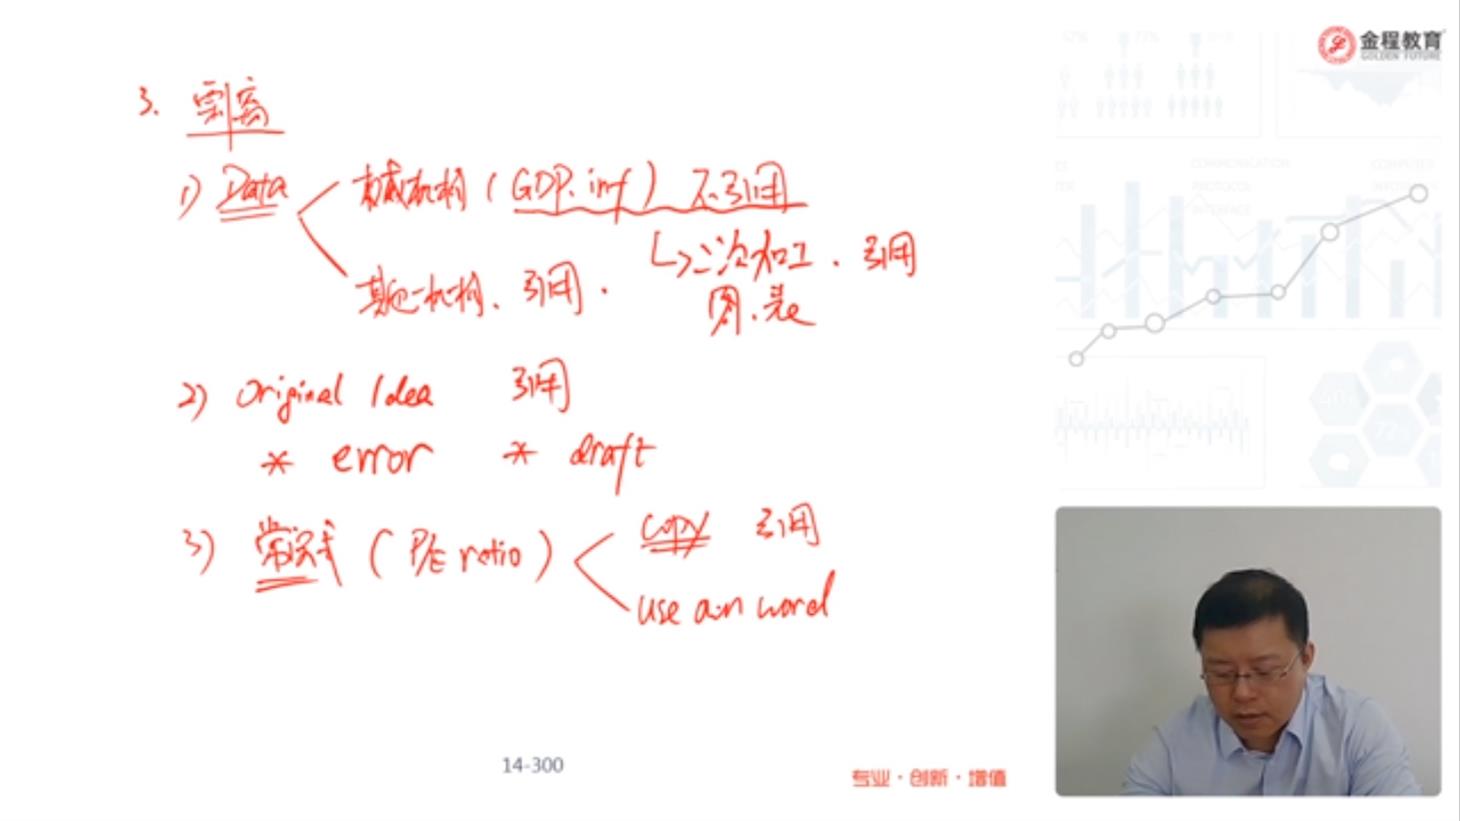 金程教育
GOLDEN FUTURE
3. 剽窃
1) Data 权威机构 (GDP. inf) 不引用
↳二次加工. 引用
其他机构. 引用.
图.表
2) Original Idea 引用
* error * draft
3) 常识 (P/E ratio) copy 引用
use own word
14-300
专业·创新·增值